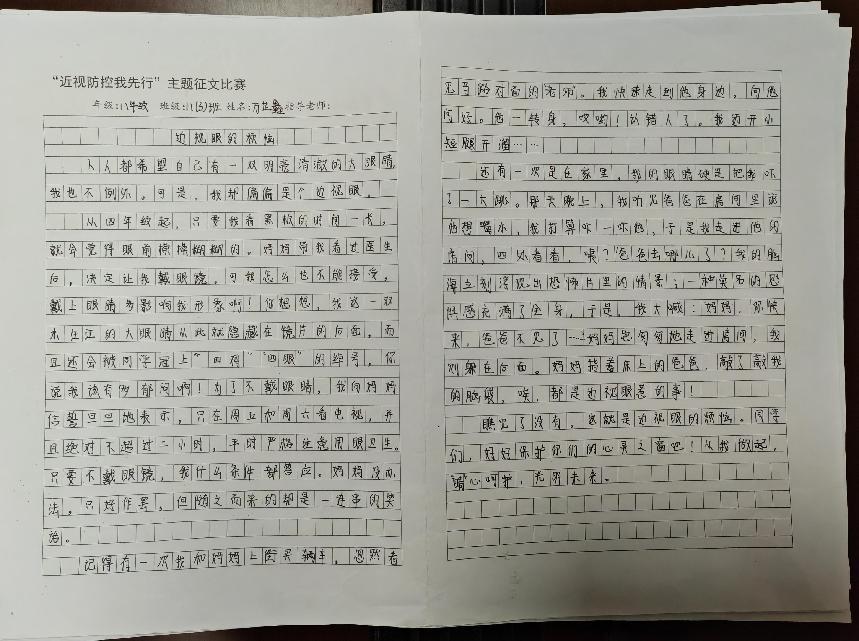 “近视防控我先行”主题征文比赛
年级:八年级 班级:八(3)班 姓名: 指导老师:
近视眼的烦恼
人人都希望自己有一双明亮清澈的大眼睛,
我也不例外。可是,我却偏偏是个近视眼。
从四年级起,只要我看黑板的时间一长,
就会觉得眼前模模糊糊的。妈妈带我看过医生
后,决定让我戴眼镜。可我怎么也不能接受,
戴上眼睛多影响我形象啊!你想想,我这一双
水汪汪的大眼睛从此就隐藏在镜片的后面,而
且还会被同学冠上“四鸡”“四眼”的绰号,你
说我该有多郁闷啊!为了不戴眼睛,我向妈妈
信誓旦旦地表示,只在周五和周六看电视,并
且绝对不超过二小时,平时严格注意用眼卫生。
只要不戴眼镜,我什么条件都答应。妈妈没办
法,只好作罢,但随之而来的却是一连串的笑
话。
记得有一次我和妈妈上街买辆车,忽然看
见马路对面的老师。我快速走到他身边,向他
问好。他一转身,哎哟!认错人了。我迈开小
短腿开溜……
还有一次是在家里,我的眼睛硬是把我吓
了一大跳。那天晚上,我听见爸爸在房间里说
他想喝水,我打算吓一吓他,于是我走进他的
房间,四处看看,咦?爸爸去哪儿了?我的脑
海立刻浮现出恐怖片里的情景;一种莫名的恐
惧感充满了全身,于是,我大喊:妈妈,你快
来,爸爸不见了……妈妈急匆匆地走过房间,我
则躲在后面。妈妈指着床上的爸爸,敲了敲我
的脑袋,唉,都是近视眼惹的事!
瞧见了没有,这就是近视眼的烦恼。同学
们,好好保护我们的心灵之窗吧!从我做起,
暖心呵护,光明未来。